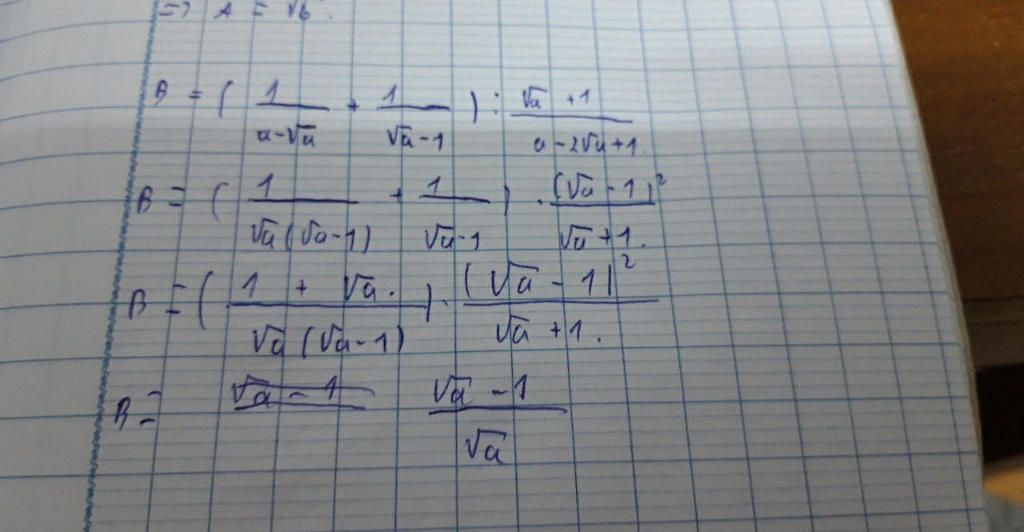 => A = √b.
B = ( 1/(a-√a) + 1/(√a-1) ) : (√a +1)/(a-2√a+1.)
B = ( 1/(√a(√a-1)) + 1/(√a-1) ) . (√a-1)²/(√a+1.)
B = ( (1 + √a.)/(√a(√a-1)) ) . (√a-1)²/(√a+1.)
B = √a-1 (√a-1)/√a